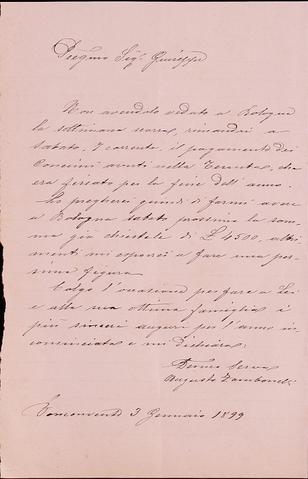 Pregmo Sigr Giuseppe
Non avendolo veduto a Bologna
la settimana scorsa, rimandai a
sabato, 7 corrente, il pagamento dei
Concimi avuti nella Tenuta, che
era fissato per la fine dell'anno.
Lo pregherei quindi di farmi avere
a Bologna sabato prossimo la som-
ma già chiestele di £ 4500, altri
menti mi esporrei a fare una pes-
sima figura.
Colgo l'occasione per fare a Lei
e alla sua ottima famiglia i
più sinceri auguri per l'anno in-
cominciato e mi dichiaro
Devmo Servo
Augusto
3 Gennaio 1899